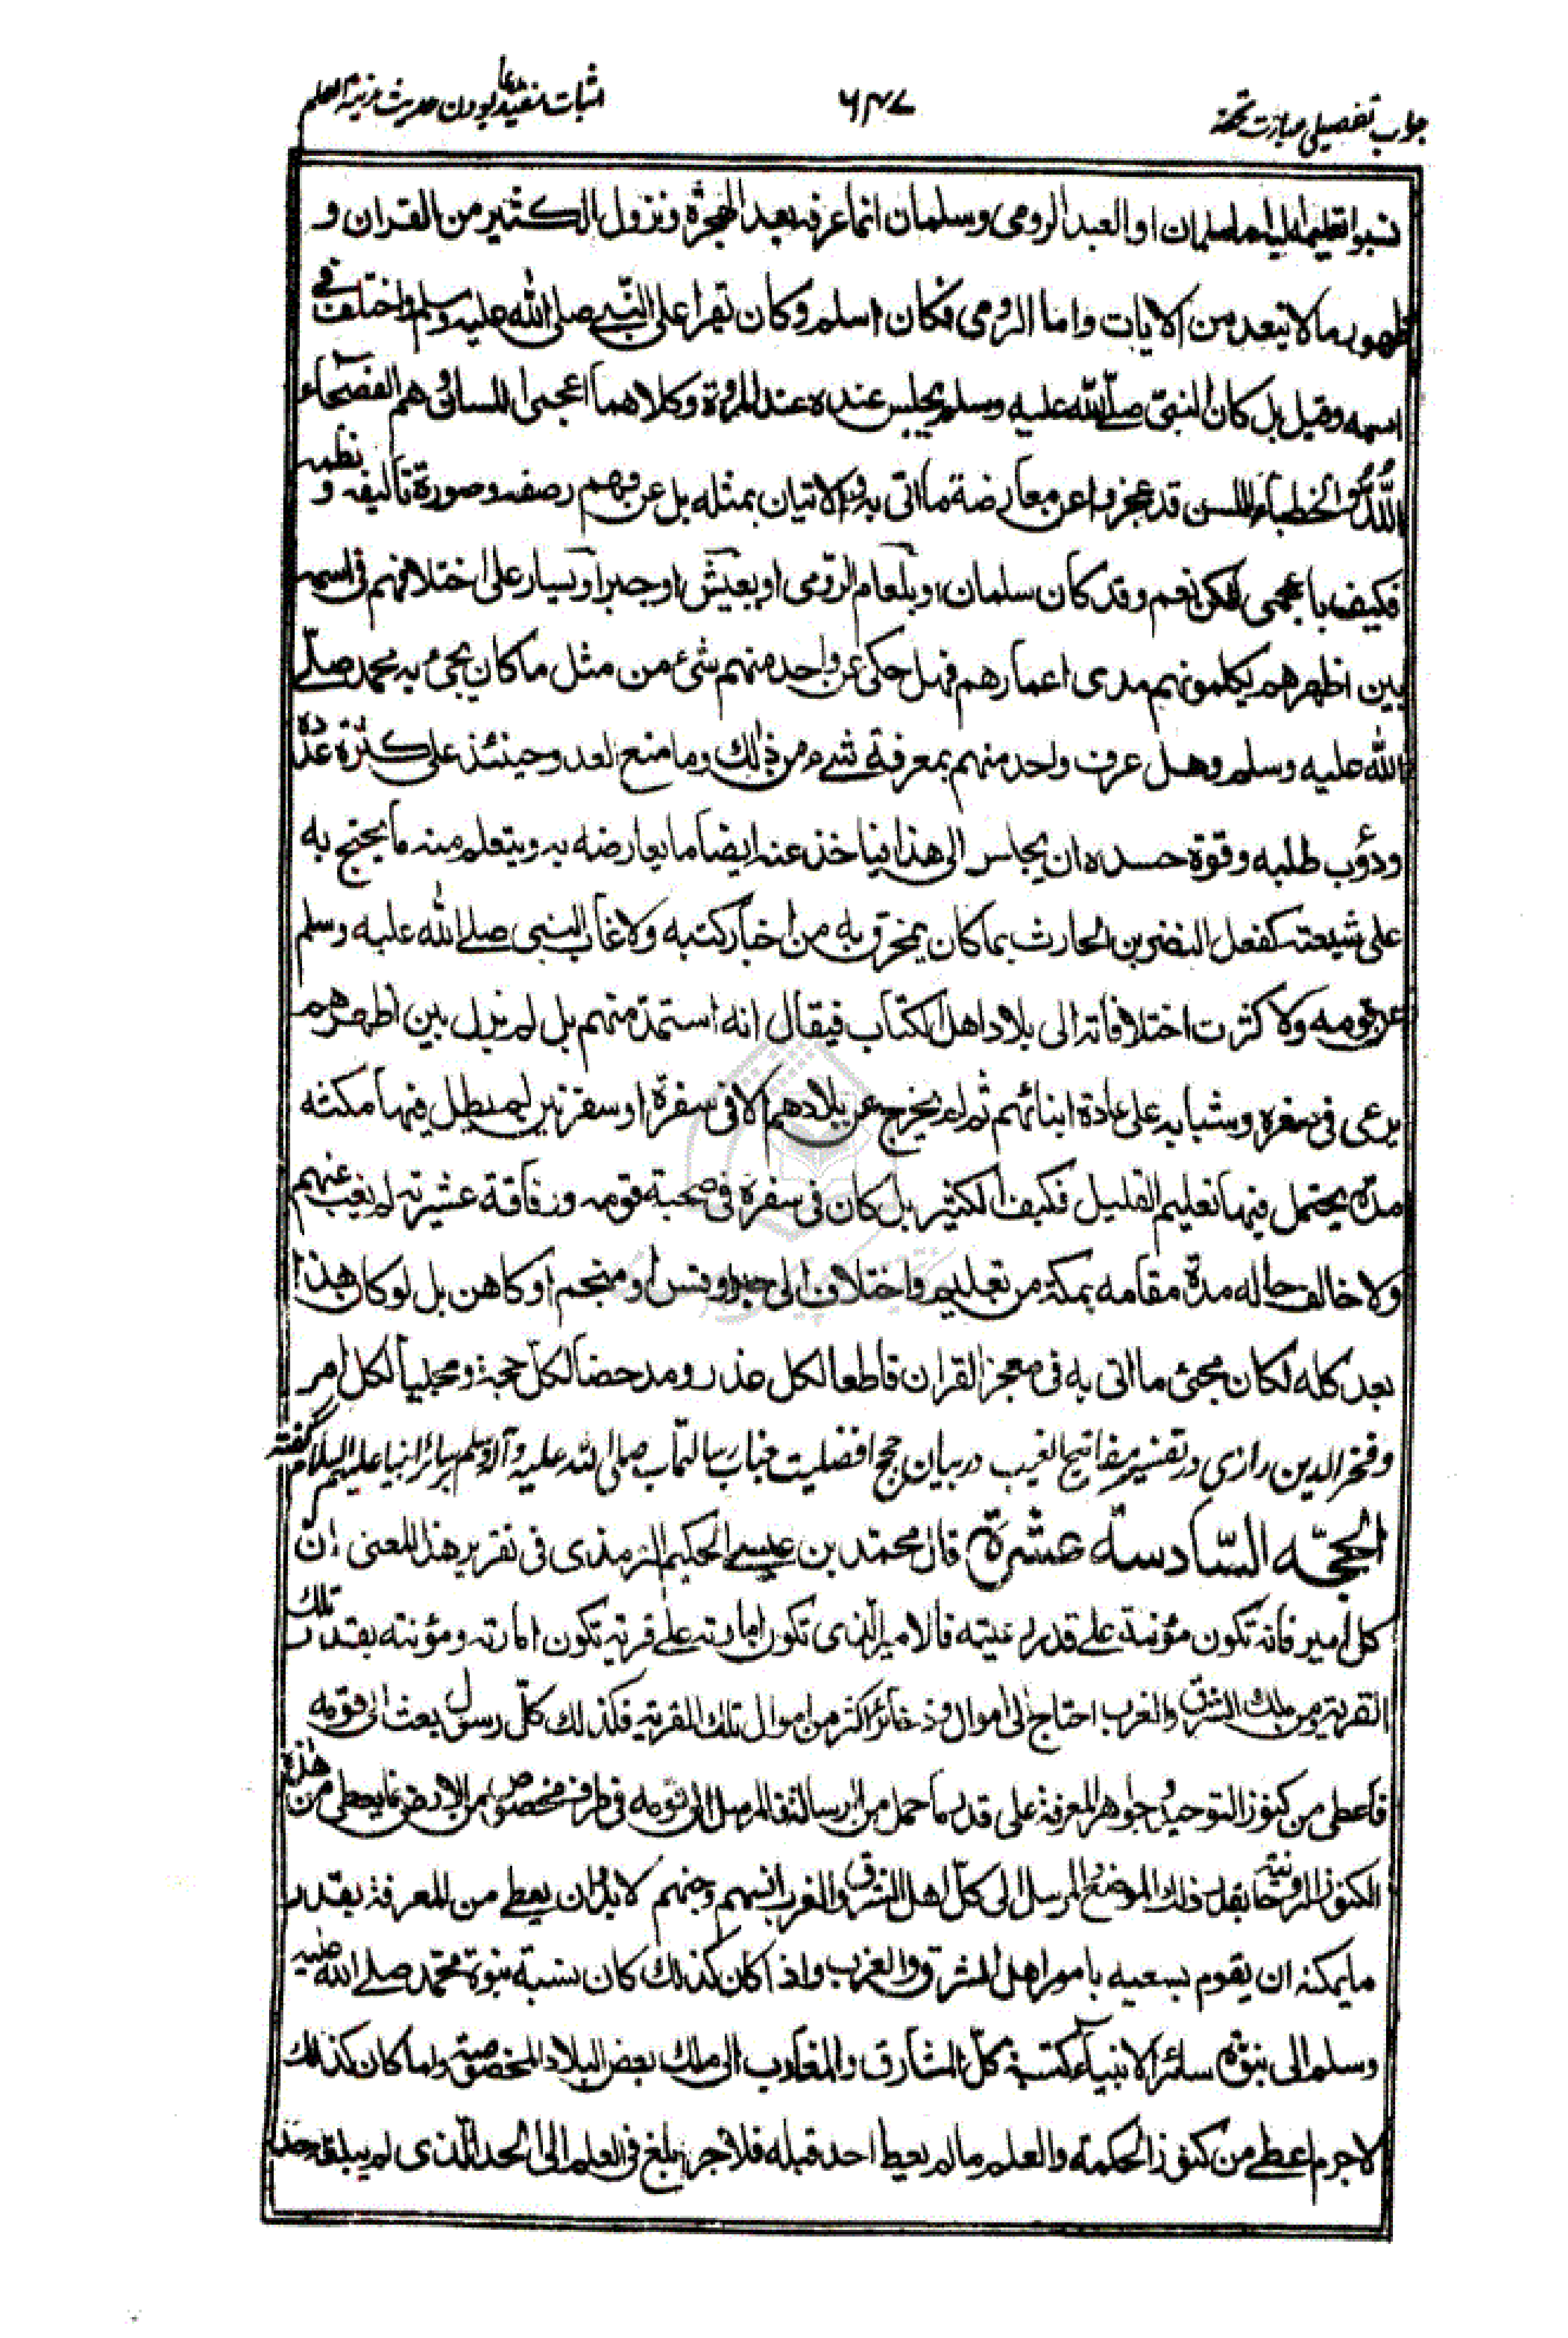 جواب تفصیلی عبارت تحفه
۶۴۷
اثبات مفید مدعا بودن حدیث مدینة العلم
نسبوا تعلیمه الیه اما سلمان او العبد الرومی وسلمان انما عرفه بعد الهجرة ونزول الکثیر من القران و
ظهور ما لا یتعد من الایات واما الرومی فکان اسلم وکان یقرا علی النبی صلی الله علیه وسلم واختلف فی
اسمه وقیل بل کان النبی صلی الله علیه وسلم یجلس عنده عند المروة وکلاهما اعجمی اللسان وهم الفصحاء
اللد والخطباء اللسن قد عجزوا عن معارضة ما اتی به والاتیان بمثله بل عن فهم رصفه وصورة تالیفه و نظمه
فکیف باعجمی الکن نعم وقد کان سلمان او بلعام الرومی او یعیش او جبر او یسار علی اختلافهم فی اسمه
بین اظهرهم یکلمونهم مدی اعمارهم فهل حکی عن واحد منهم شئ من مثل ما کان یجئ به محمد صلی
الله علیه وسلم وهل عرف واحد منهم بمعرفة شئ من ذلک وما منع العدو حینئذ علی کثرة عدده
ودؤب طلبه وقوة حسده ان یجلس الی هذا فیاخذ عنه ایضا ما یعارضه به ویتعلم منه ما یحتج به
علی شیعته کفعل النضر بن الحارث بما کان یمخرق به من اخبار کتبه ولا غاب النبی صلی الله علیه وسلم
عن قومه ولا کثرت اختلافاته الی بلاد اهل الکتاب فیقال انه استمد منهم بل لم یزل بین اظهرهم
یرعی فی صغره وشبابه علی عادة ابنائهم ثم لم یخرج عن بلادهم الا فی سفرة او سفرتین لم یطل فیها مکثه
مدة یحتمل فیها تعلیم القلیل فکیف الکثیر بل کان فی سفره فی صحبة قومه ورفاقة عشیرته لم یغب عنهم
ولا خالف حاله مدة مقامه بمکة من تعلیم واختلاف الی حبر او قس او منجم او کاهن بل لو کان هذا
بعد کله لکان مجئ ما اتی به فی معجز القران قاطعا لکل عذر ومدحضا لکل حجة ومجلیا لکل امر
وفخر الدین رازی در تفسیر مفاتیح الغیب در بیان حجج افضلیت جناب رسالتمآب صلی الله علیه وآله وسلم بر سائر انبیا علیهم السلام گفته
الحجّه السّادسة عشرة قال محمد بن عیسی الحکیم الترمذی فی تقریر هذا المعنی ان
کل امیر فانه تکون مؤنته علی قدر رعیته فالامیر الذی تکون امارته علی قریة تکون امارته ومؤنته بقدر تلک
القریة ومن ملک الشرق والغرب احتاج الی اموال وذخائر اکثر من اموال تلک القریة فکذلک کل رسول بعث الی قومه
فاعطی من کنوز التوحید وجواهر المعرفة علی قدر ما حمل من الرسالة فالمرسل الی قومه فی طرف مخصوص من الارض انما یعطی من هذه
الکنوز الروحانیة بقدر ذلک الموضع والمرسل الی کل اهل الشرق والغرب انسهم وجنهم لا بد ان یعطی من المعرفة بقدر
ما یمکنه ان یقوم بسعیه بامور اهل المشرق والغرب واذا کان کذلک کان نسبة نبوة محمد صلی الله علیه
وسلم الی نبوة سائر الانبیاء کنسبة کل المشارق والمغارب الی ملک بعض البلاد المخصوصة ولما کان کذلک
لا جرم اعطی من کنوز الحکمة والعلم ما لم یعط احد قبله فلا جرم بلغ فی العلم الی الحد الذی لم یبلغه